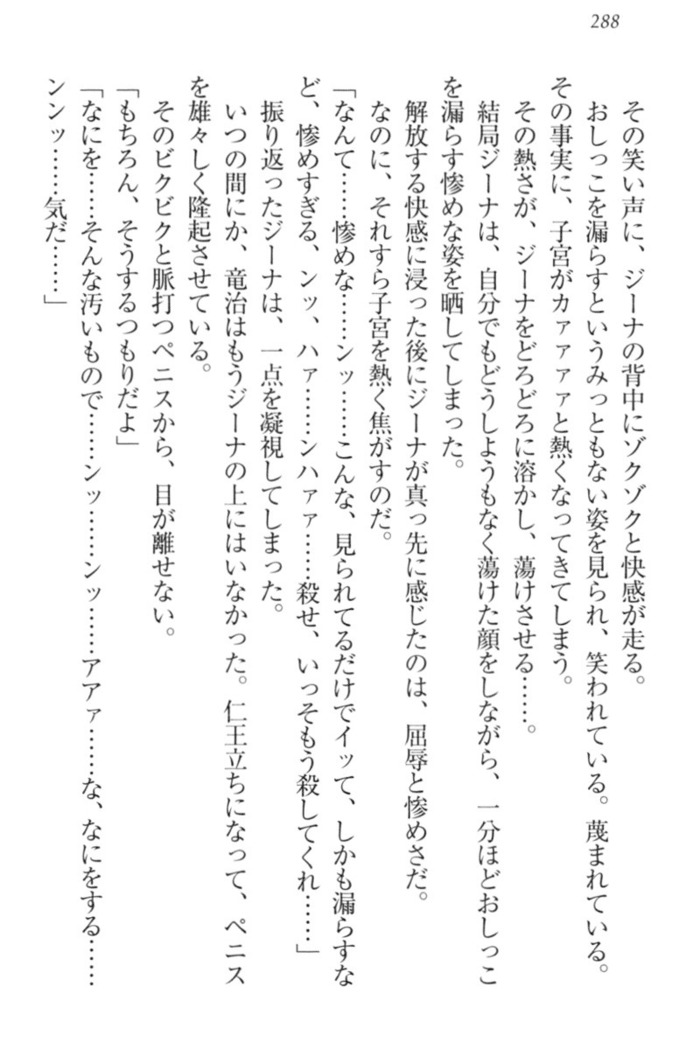 288
その笑い声に、ジーナの背中にゾクゾクと快感が走る。
おしっこを漏らすというみっともない姿を見られ、笑われている。蔑まれている。
その事実に、子宮がカァァァァと熱くなってきてしまう。
その熱さが、ジーナをどろどろに溶かし、蕩けさせる……。
結局ジーナは、自分でもどうしようもなく蕩けた顔をしながら、一分ほどおしっこ
を漏らす惨めな姿を晒してしまった。
解放する快感に浸った後にジーナが真っ先に感じたのは、屈辱と惨めさだ。
なのに、それすら子宮を熱く焦がすのだ。
「なんて……惨めな……ンッ……こんな、見られてるだけでイッて、しかも漏らすな
ど、惨めすぎる、ンッ、ハァ……ンハァァ……殺せ、いっそもう殺してくれ……」
振り返ったジーナは、一点を凝視してしまった。
いつの間にか、竜治はもうジーナの上にはいなかった。仁王立ちになって、ペニス
を雄々しく隆起させている。
そのビクビクと脈打つペニスから、目が離せない。
「もちろん、そうするつもりだよ」
「なにを……そんな汚いもので……ンッ……ンッ……アアァ……な、なにをする……
ンンッ……気だ……」